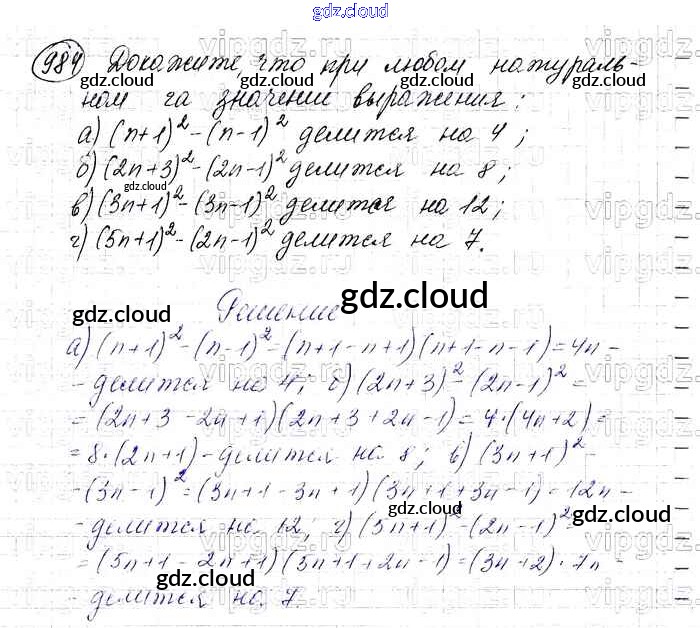 gdz.cloud
984 Докажите, что при любом натураль-
ном га значении выражения:
а) (n+1)² - (n-1)² делится на 4;
б) (2n+3)² - (2n-1)² делится на 8;
в) (3n+1)² - (3n-1)² делится на 12;
г) (5n+1)² - (2n-1)² делится на 7.
Решение
а) (n+1)² - (n-1)² = (n+1-n+1)(n+1-n-1) = 4n -
- делится на 4; б) (2n+3)² - (2n-1)² =
= (2n+3-2n+1)(2n+3+2n-1) = 4·(4n+2) =
= 8·(2n+1) - делится на 8; в) (3n+1)² -
- (3n-1)² = (3n+1-3n+1)(3n+1+3n-1) = 12n -
- делится на 12; г) (5n+1)² - (2n-1)² =
= (5n+1-2n+1)(5n+1+2n-1) = (3n+2)·7n -
- делится на 7.